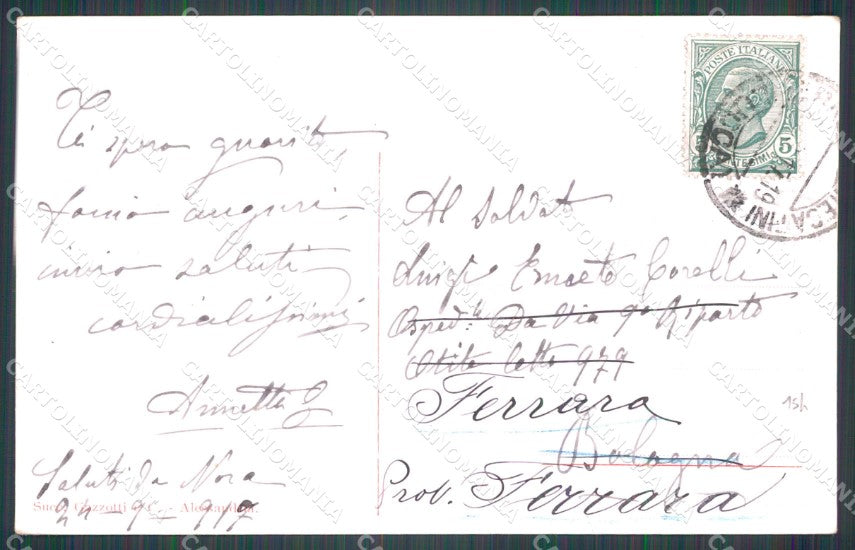 Ti spero guarito,
faccio auguri,
invio saluti
cordialissimi
Annetta G
Saluti da Nora
24-9-917
Succ. Gazzotti & C. - Alessandria.
POSTE ITALIANE
CENTESIMI 5
Al Soldat
Luigi Ernesto Corelli
Osped.le Da Via 9° Riparto
Otite letto 979
Ferrara
Bologna
Prov. Ferrara
15h
CARTOLINOMANIA